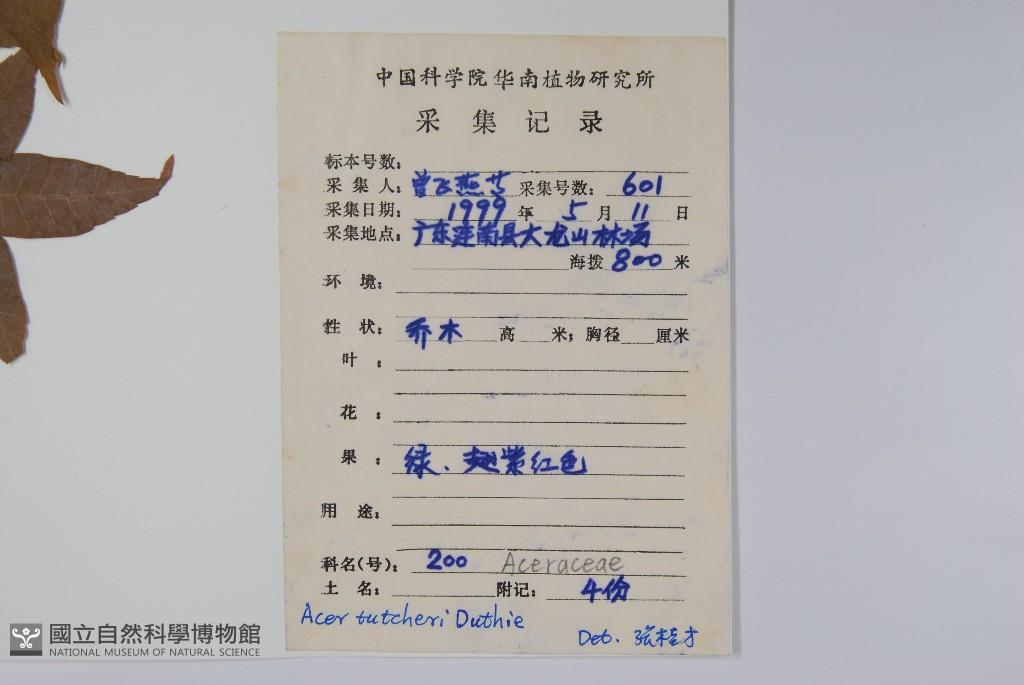 中国科学院华南植物研究所
采集记录
标本号数：
采集人：曾飞燕等 采集号数：601
采集日期：1999年5月11日
采集地点：广东连南县大龙山林场
海拨800米
环境：
性状：乔木 高 米；胸径 厘米
叶：
花：
果：绿、翅紫红色
用途：
科名(号)：200 Aceraceae
土名： 附记：4份
Acer tutcheri Duthie
Det. 张桂才
國立自然科學博物館
NATIONAL MUSEUM OF NATURAL SCIENCE